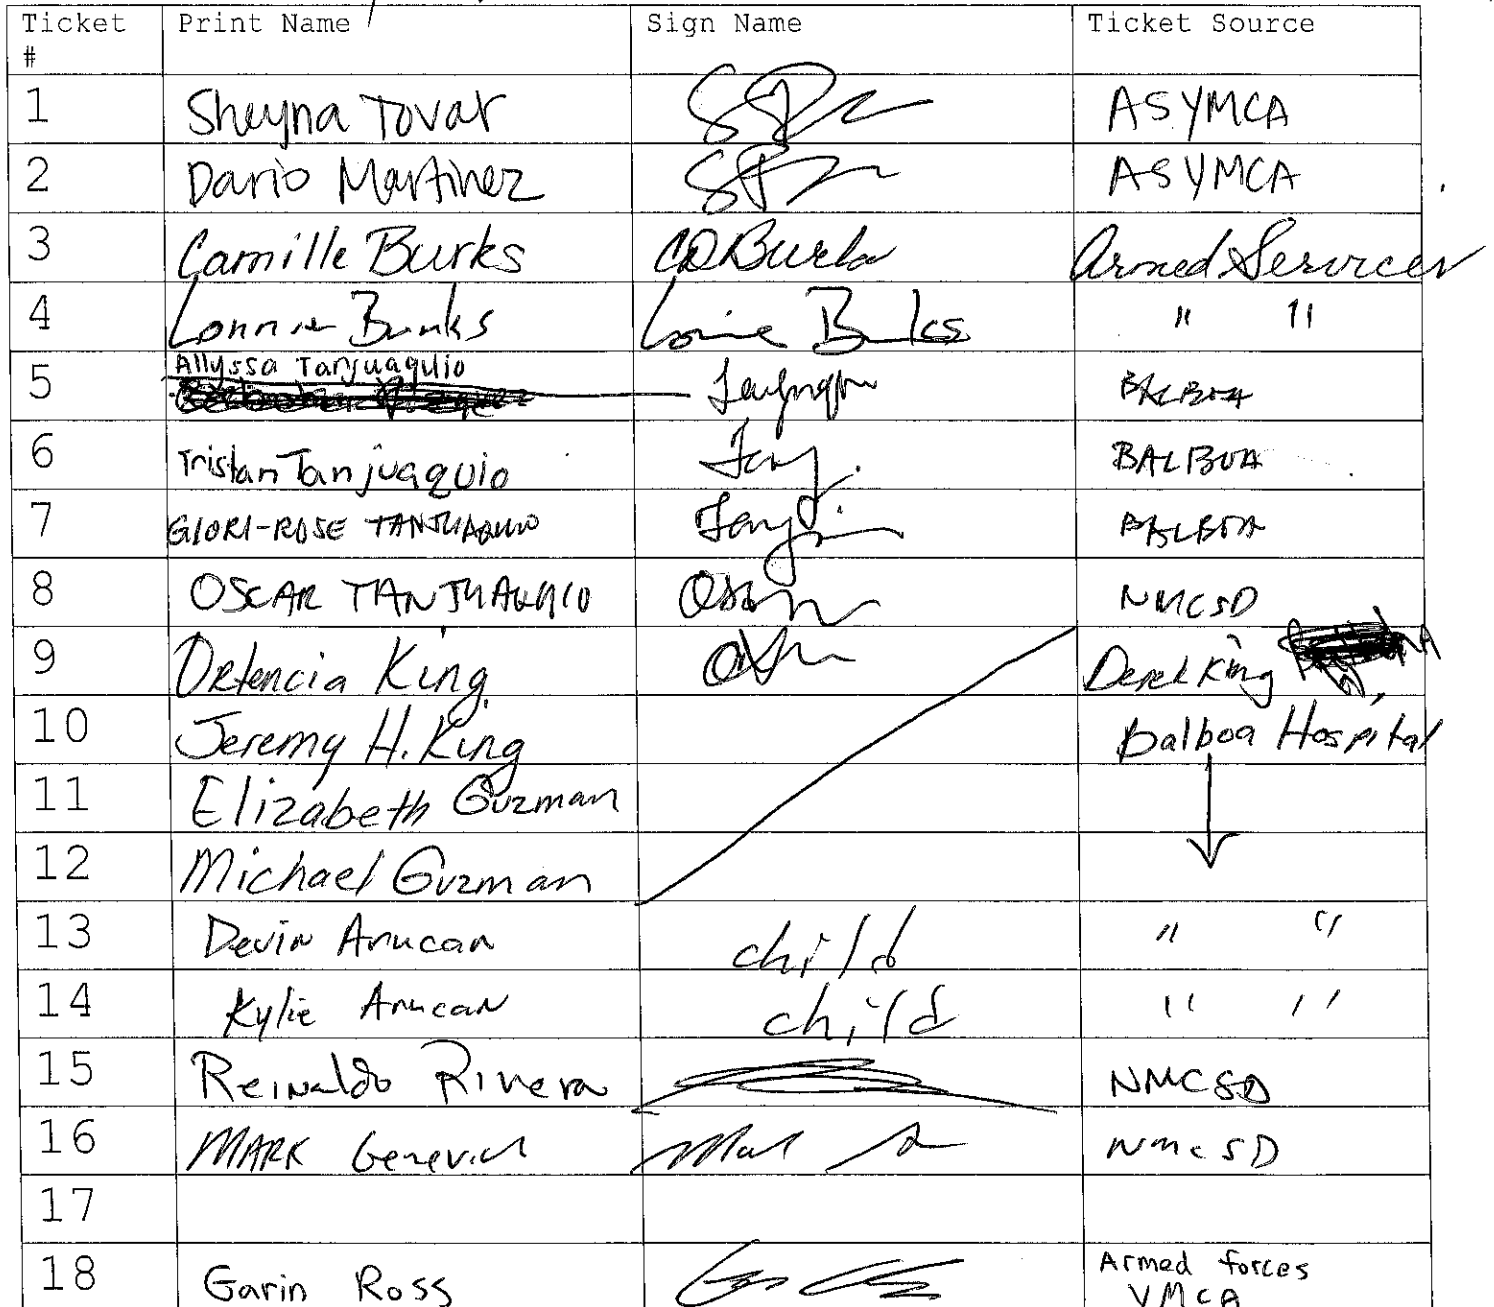 Ticket # Print Name Sign Name Ticket Source
1 Sheyna Tovar ASYMCA
2 Dario Martinez ASYMCA
3 Camille Burks CDBurks Armed Services
4 Lonnie Burks Lonnie Burks " "
5 Allyssa Tanjuaquio BALBOA
6 Tristan Tanjuaquio BALBOA
7 GLORI-ROSE TANJUAQUIO BALBOA
8 OSCAR TANJUAQUIO NMCSD
9 Ortencia King Derek King
10 Jeremy H. King Balboa Hospital
11 Elizabeth Guzman
12 Michael Guzman
13 Devin Arucan child " "
14 Kylie Arucan child " "
15 Reinaldo Rivera NMCSD
16 MARK Genevich NMCSD
17
18 Garin Ross Armed forces
YMCA